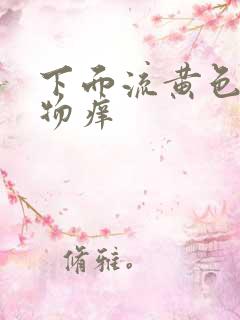 下面流黄色
物痒
脩雅。